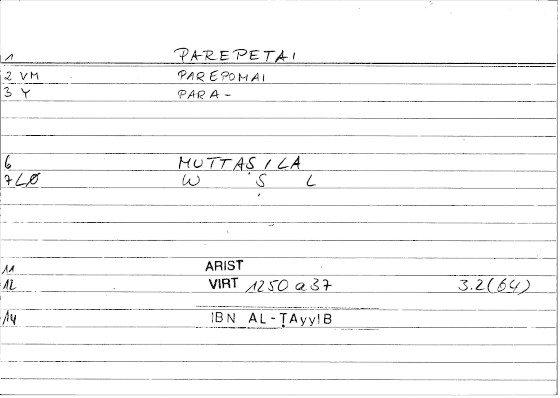 1 PAREPETAI
2 VM PAREPOMAI
3 Y PARA-
6 MUTTAṢILA
7 LØ W Ṣ L
11 ARIST
12 VIRT 1250 a 37 3.2(64)
14 IBN AL-ṬAyyIB